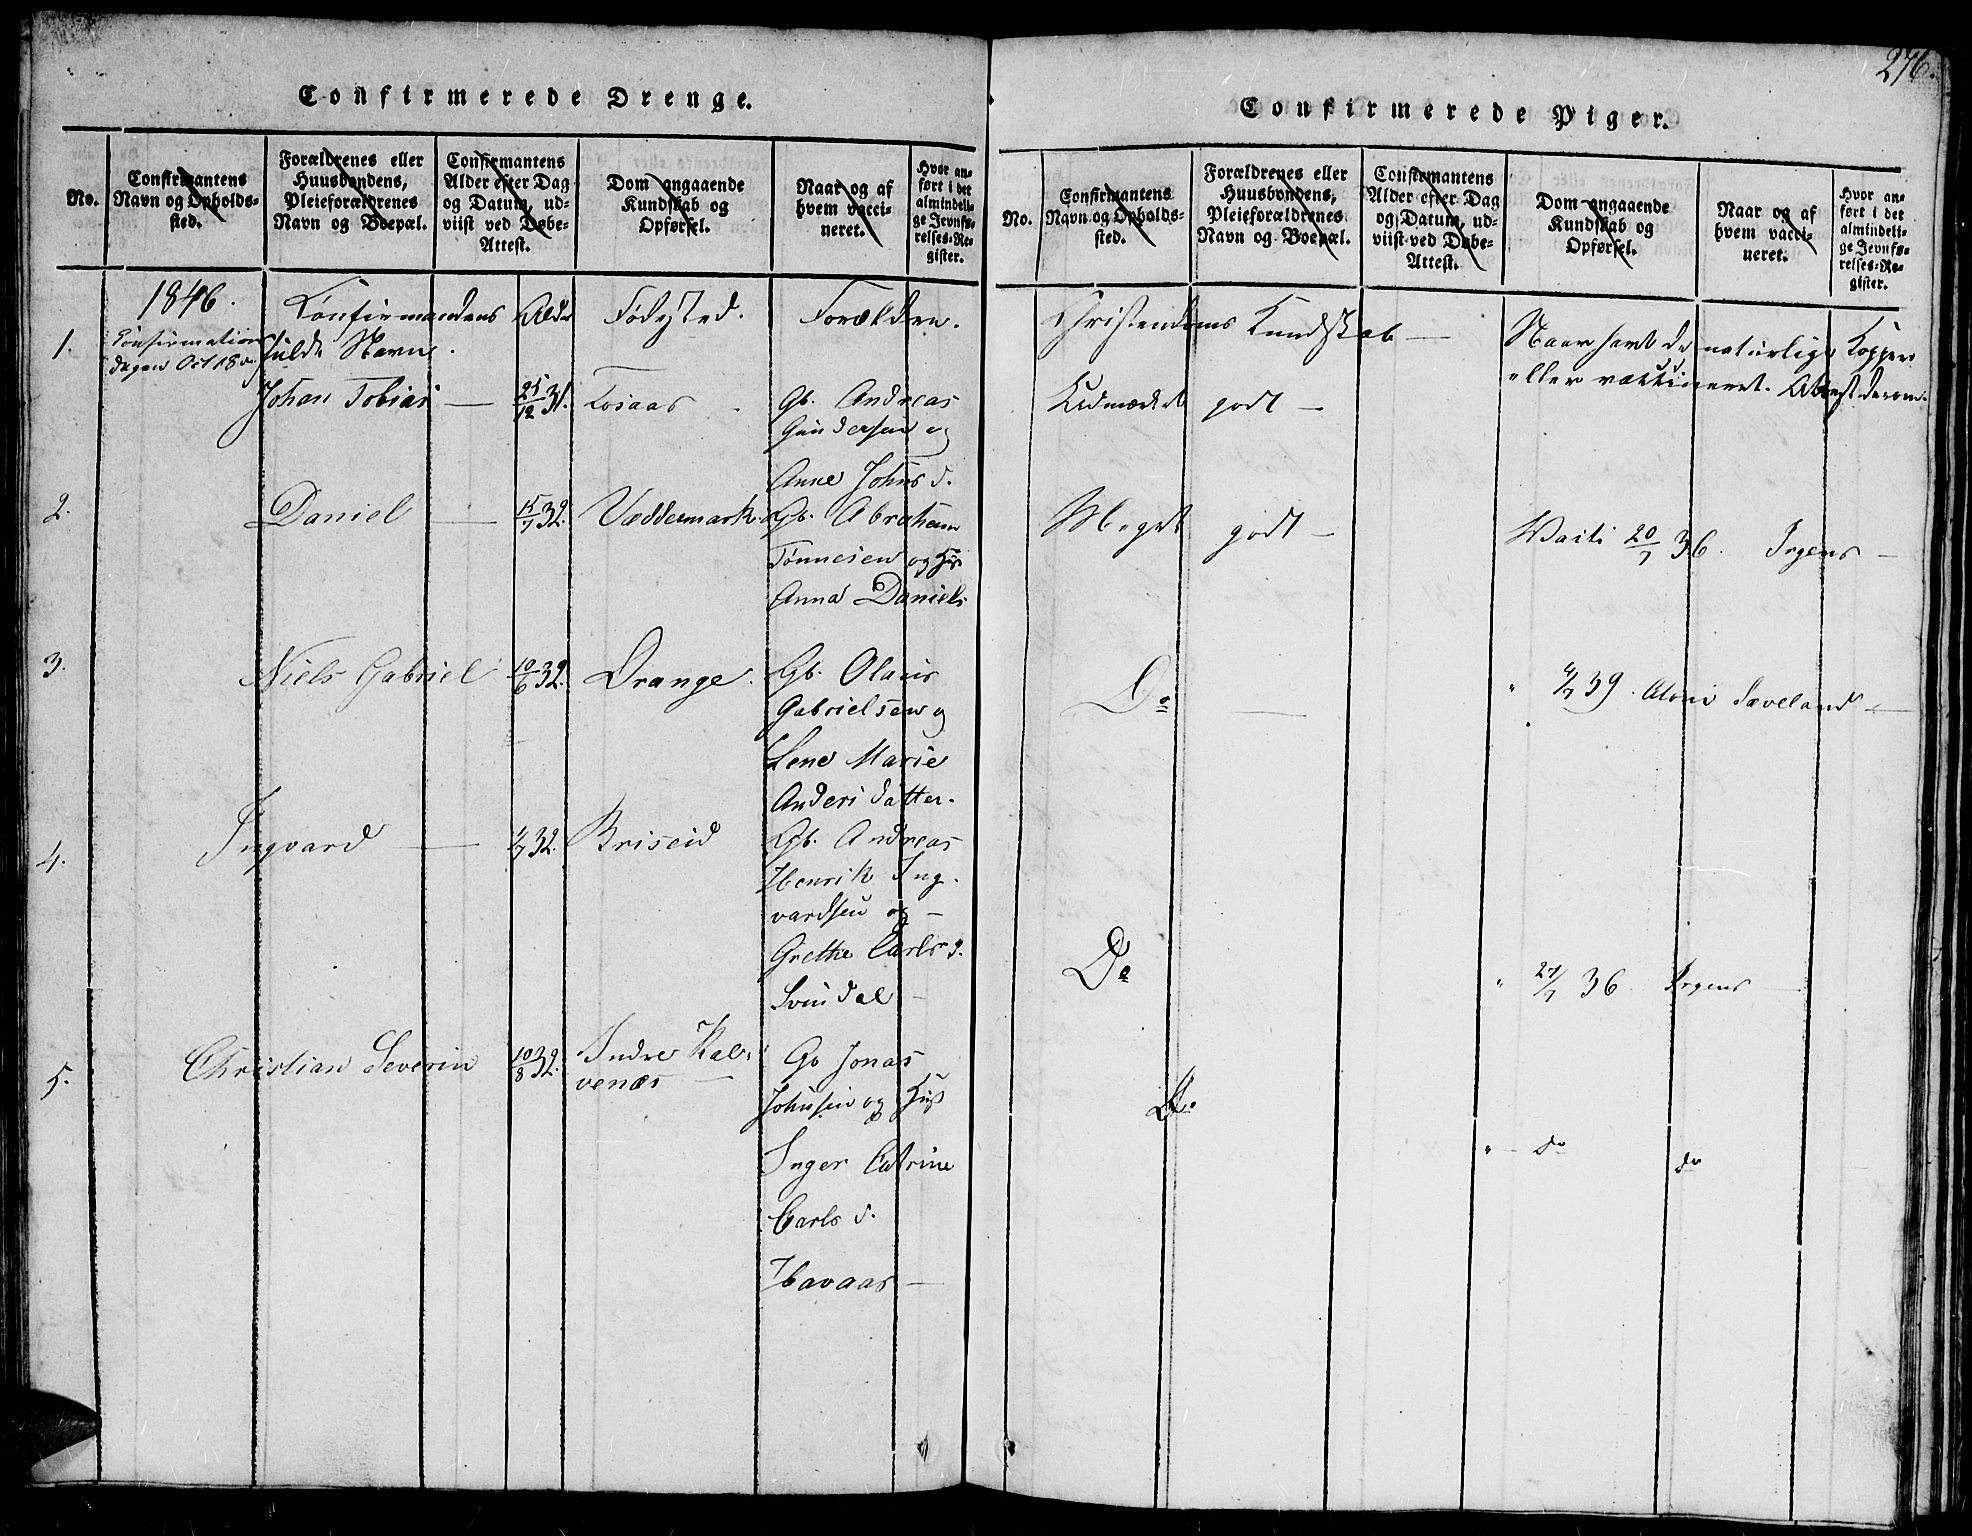 Confirmerede Drenge.
No.
Confirmantens
Navn og Opholds-
sted.
Forældrenes eller
Huusbondens,
Pleieforældrenes
Navn og Boepæl.
Confirmantens
Alder efter Dag
og Datum, ud-
viist ved Døbe-
Attest.
Dom angaaende
Kundskab og
Opførsel.
Naar og af
hvem vacci-
neret.
Hvor an-
ført i det
almindeli-
ge Jevnfø-
relses-Re-
gister.
1846.
Confirmations
dagen Oct 18
Confirmandens
fulde Navn.
Alder
Fødested.
Forældre.
1.
Johan Tobias —
25/12 31.
Gb. Andreas
Gundersen og
Anne Johns d.
2.
Daniel —
15/7 32.
Veddermark.
Gb. Abraham
Tønnesen og Hus
Anna Daniels
3.
Niels Gabriel
10/6 32.
Drange.
Gb. Olaus
Gabrielsen og
Lene Marie
Andersdatter.
4.
Ingvard —
4/7 32.
Briseid
Gb. Andreas
Henrik Ing-
vardsen og —
Grethe Carls d.
Svindal —
5.
Christian Severin
10/8 32.
Indre Kal-
venæs —
Gb Jonas
Johnsen og Hus
Inger Catrine
Carls d.
Havaas —
276.
Confirmerede Piger.
No.
Confirmantens
Navn og Opholds-
sted.
Forældrenes eller
Huusbondens,
Pleieforældrenes
Navn og Boepæl.
Confirmantens
Alder efter Dag
og Datum, ud-
viist ved Døbe-
Attest.
Dom angaaende
Kundskab og
Opførsel.
Naar og af
hvem vacci-
neret.
Hvor an-
ført i det
almindeli-
ge Jevnfø-
relses-Re-
gister.
Christendoms Kundskab —
Naar havt de naturlige Kopper
eller vaccineret. Attest derom.
Udmærket godt —
Meget godt —
20/7 36. Irgens —
Do —
" 4/7 39. Sæveland —
Do
" 27/7 36 Irgens —
Do
" — do do